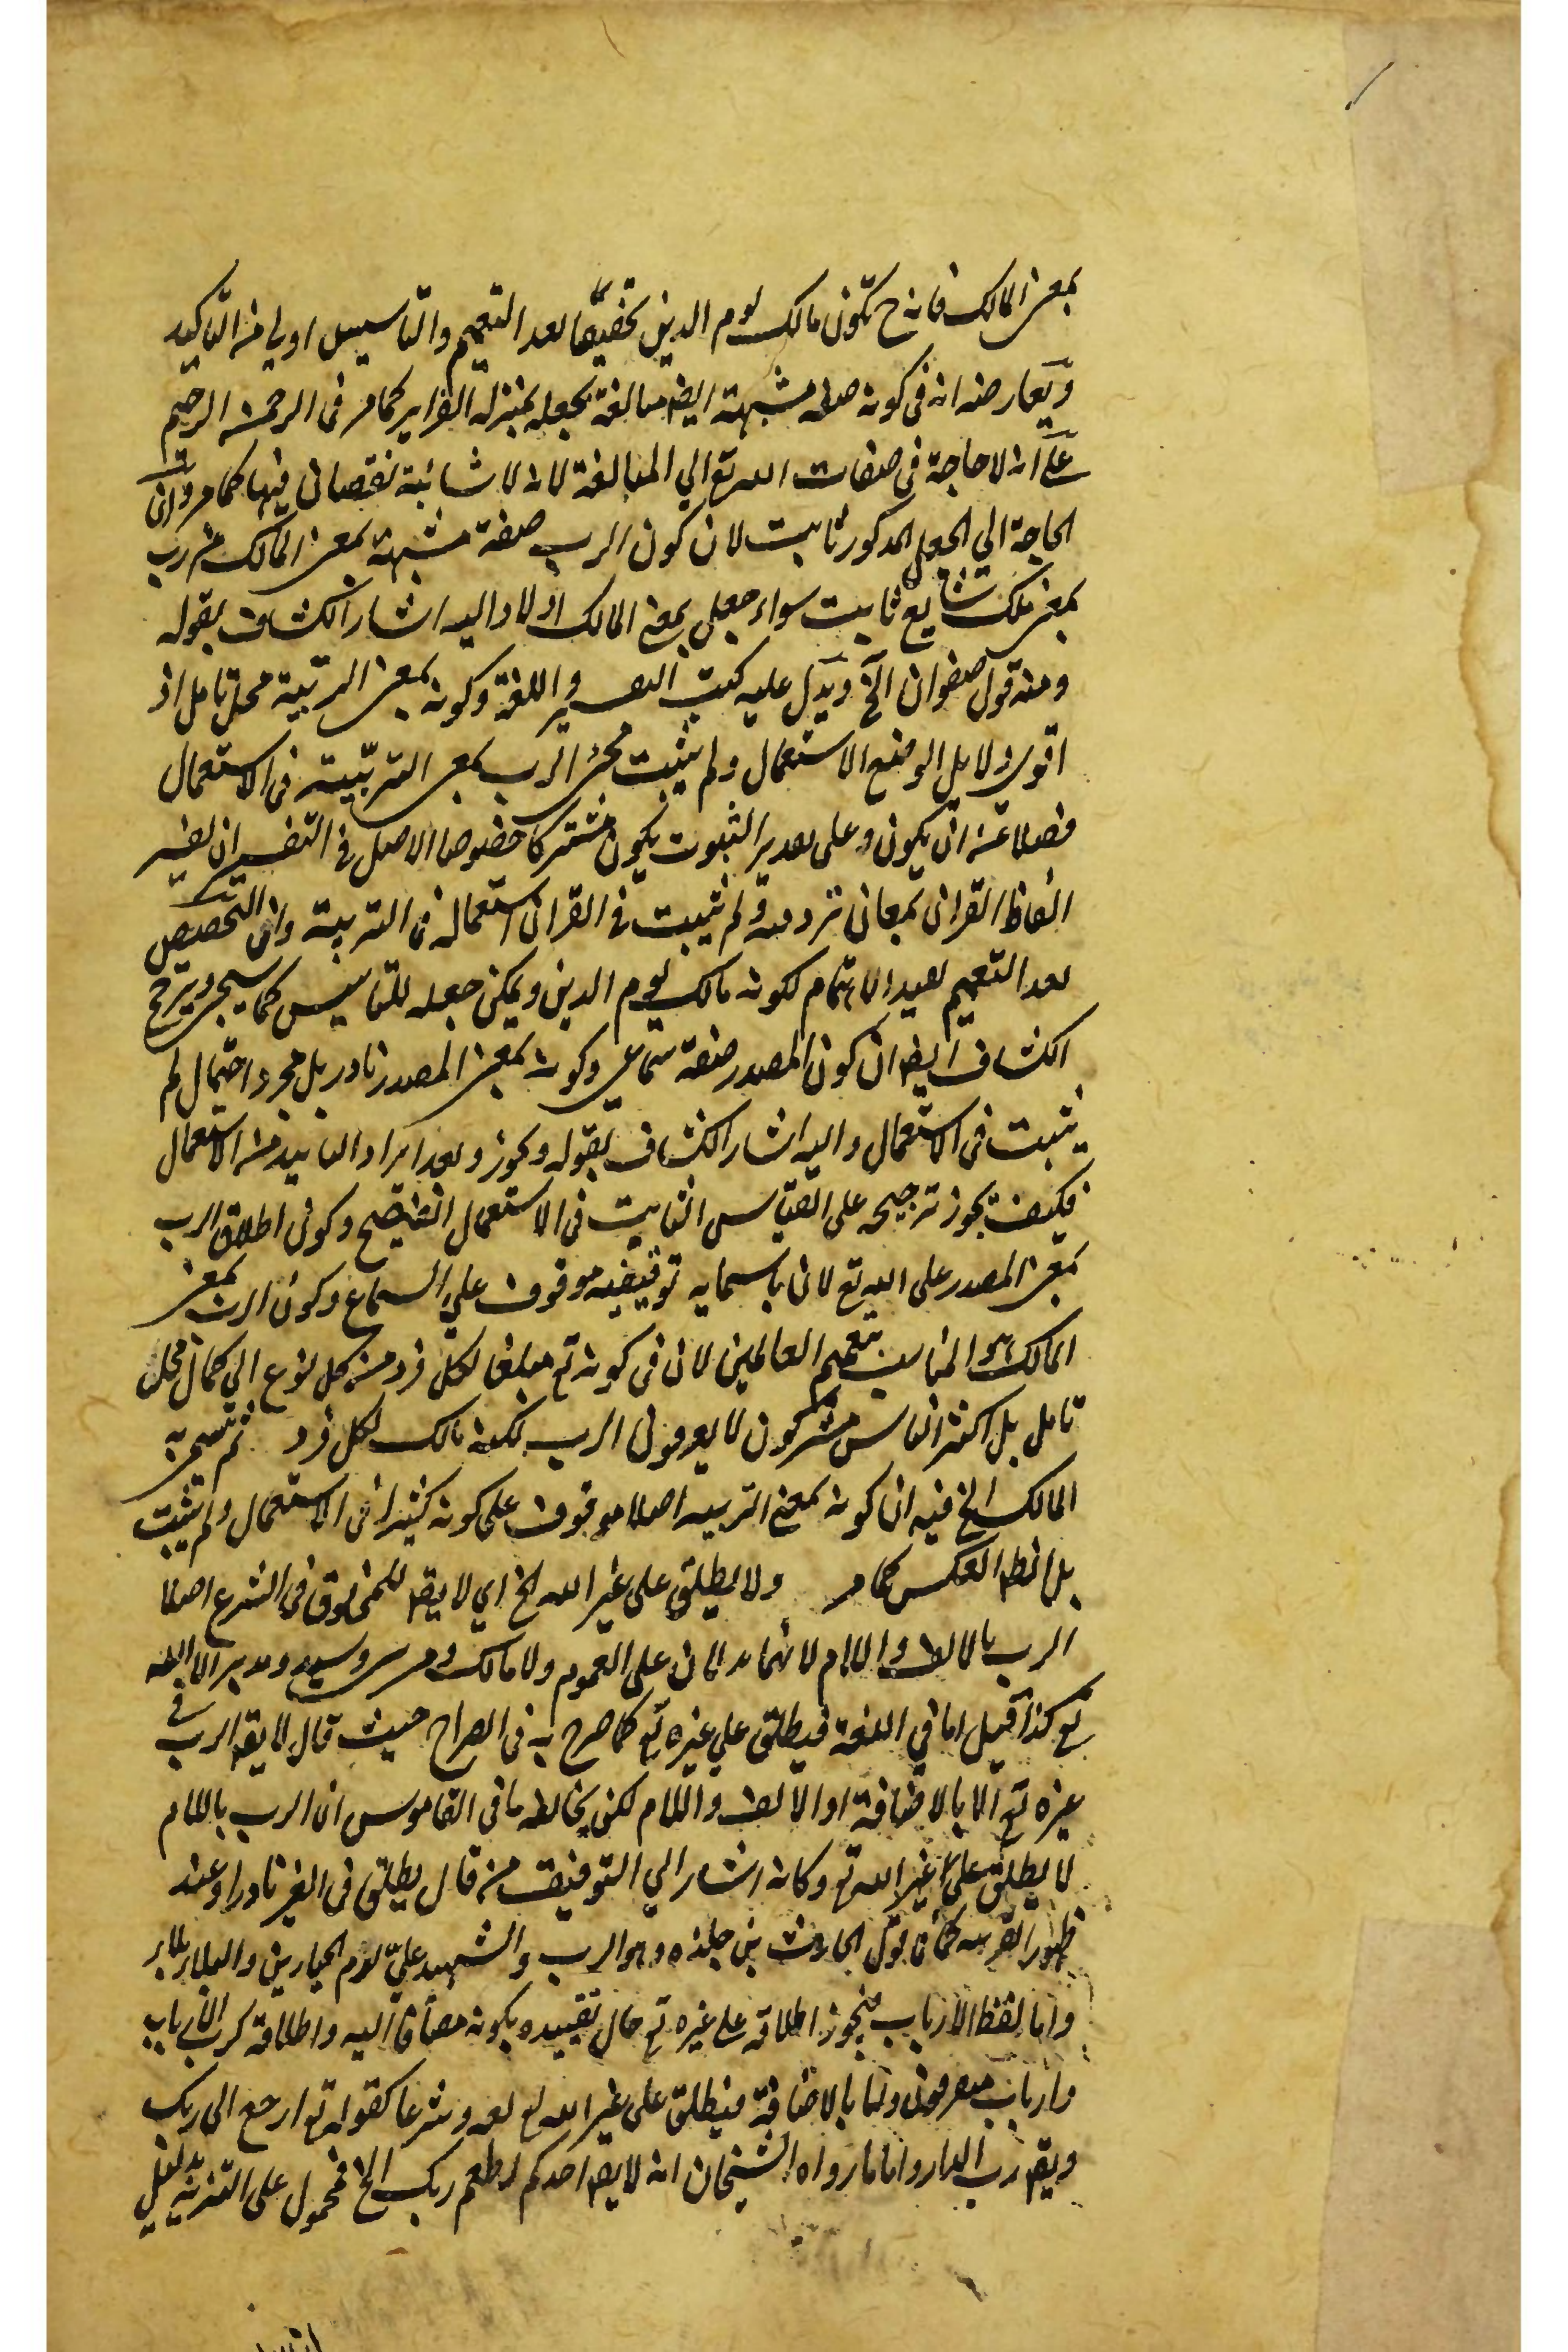 بمعنى المالك فانه ح تكون مالك يوم الدين تخصيصا بعد التعميم والتاسيس اولى من التاكيد
ويعارضه انه فى كونه صفة مشبهة ايضا مبالغة بجعله بمنزلة الغرايز كما مر فى الرحمن الرحيم
على انه لا حاجة فى صفات الله تع الي المبالغة لانه لا شائبة نقصان فيها كما مر وان
الحاجة الي الجعل المذكور ثابت لان كون الرب صفة مشبهة بمعنى المالك من رب
بمعنى ملك شايع ثابت سواء جعل بمعنى المالك او لا واليه اشار الكشاف بقوله
ومنه قول صفوان الخ ويدل عليه كتب التفسير واللغة وكونه بمعنى التربية محل تامل اذ
اقوى دلايل الوضع الاستعمال ولم يثبت مجئ الرب بمعنى التربية فى الاستعمال
فضلا عن ان يكون وعلى تقدير الثبوت يكون مشتركا خصوصا الاصل فى التفسير ان يفسر
الفاظ القران بمعانى ولم يثبت فى القران استعماله فى التربية وان التخصيص
بعد التعميم يفيد الاهتمام لكونه مالك يوم الدين ويمكن جعله للتاسيس كما سيجئ ويرجح
الكشاف ايضا ان كون المصدر صفة سماعي وكونه بمعنى المصدر نادر بل مجرد احتمال لم
يثبت فى الاستعمال واليه اشار الكشاف بقوله ويجوز وبعد ايراد التاييد من الاستعمال
فكيف يجوز ترجيحه على القياس الثابت فى الاستعمال الفصيح وكون اطلاق الرب
بمعنى المصدر على الله تع لان باسمايه توقيفيه موقوف علي السماع وكون الرب بمعنى
المالك هو المناسب بتعميم العالمين لان فى كونه تع مبلغا لكل فرد من كل نوع الي كماله محل
تامل بل اكثر الناس مشركون لا يعرفون الرب لكنه مالك لكل فرد ثم سمى به
المالك الخ فيه ان كونه بمعنى التربيه اصلا موقوف على كونه كثيرا فى الاستعمال ولم يثبت
بل الظ العكس كما مر ولا يطلق على غير الله الخ اي لا يقا للمخلوق فى الشرع اصلا
الرب بالالف واللام لانهما يدلان على العموم ولا مالك ومربى وسيد ومدبر الا الله
تع كذا قيل اما في اللغة فيطلق علي غيره تع كما صرح به فى الصراح حيث قال لا يقا الرب فى
غيره تع الا بالاضافة او الالف واللام لكن يخالفه ما فى القاموس ان الرب باللام
لا يطلق على غير الله تع وكانه اشار الي التوفيق من قال يطلق فى الغير نادرا وعند
ظهور القرينه كما فى قول الحارث بن حلزه وهو الرب والشهيد علي يوم الحيارين والبلاء بلاء
واما لفظ الارباب فيجوز اطلاقه على غيره تع حال تقييده بكونه مضافا اليه واطلاقه كرب الارباب
وارباب متفرقون واما بالاضافة فيطلق على غير الله تع لغه وشرعا كقوله تع ارجع الى ربك
ويقا رب الدار واما ما رواه الشيخان انه لا يقا احدكم اطعم ربك الخ فمحمول على التنزيه بدليل